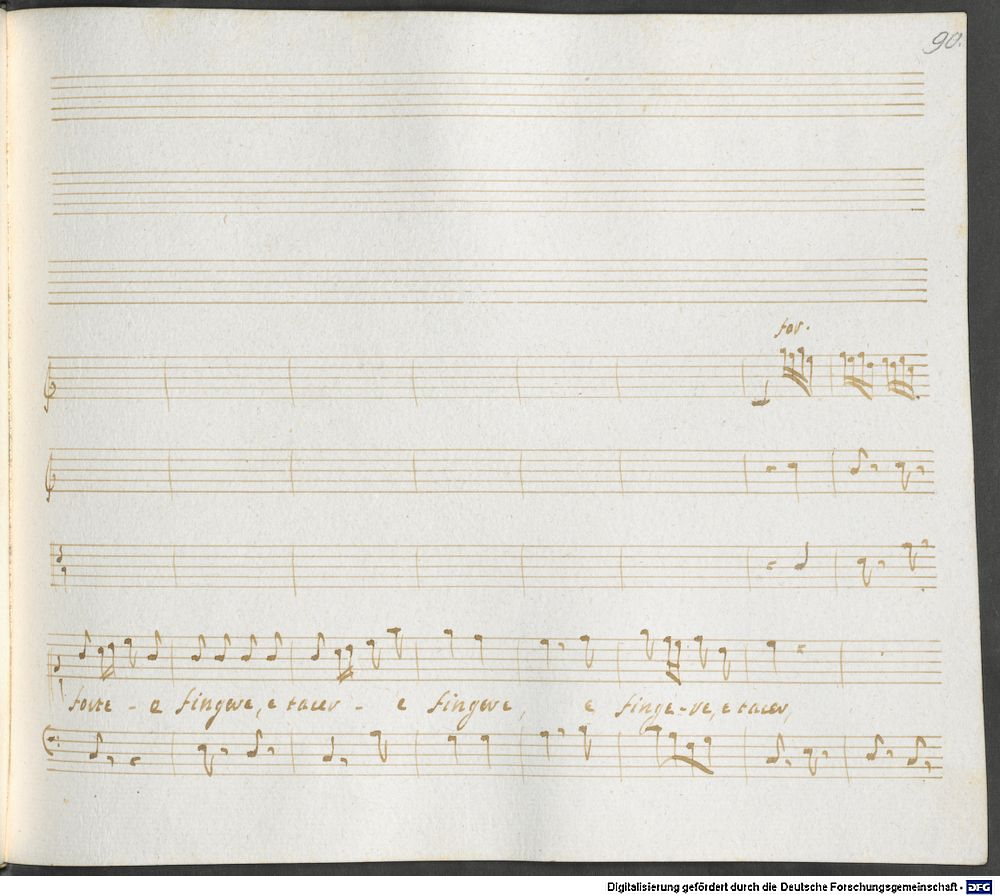 90.
for.
forte - e fingere, e tacer - e fingere, e finge-re, e tacer,
Digitalisierung gefördert durch die Deutsche Forschungsgemeinschaft - DFG